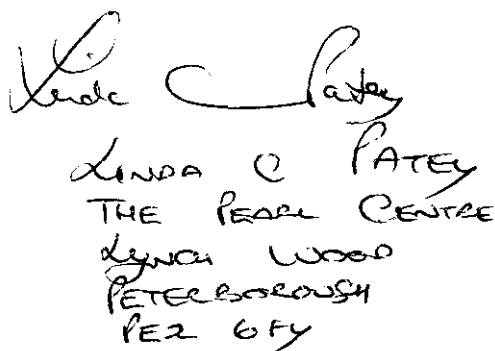 Linda C Patey
LINDA C PATEY
THE PEARL CENTRE
LYNCH WOOD
PETERBOROUGH
PE2 6FY